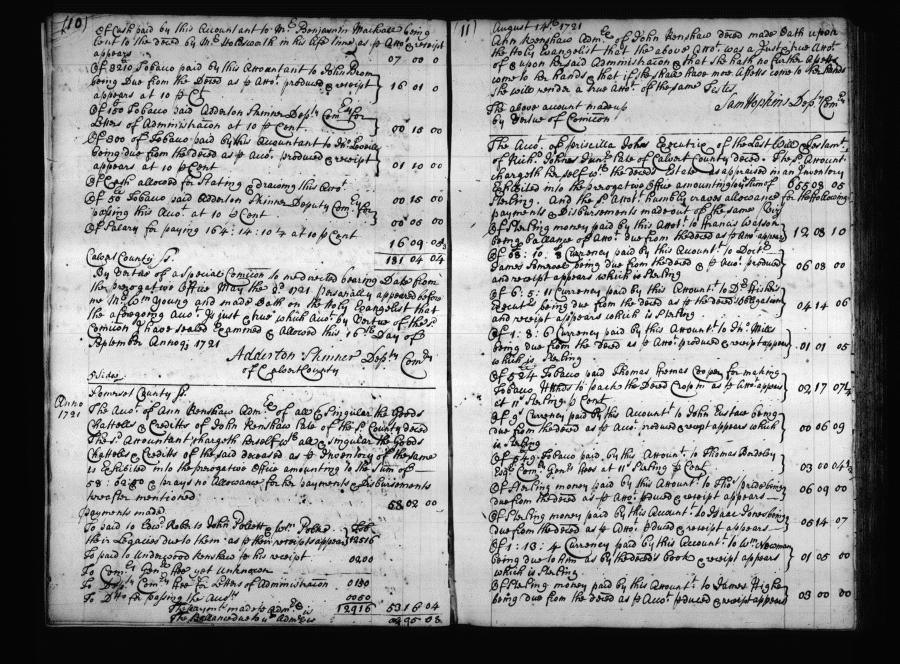 (10)
Of Cash paid by this Accountant to Mr. Benjamin Mackall being
lent to the deced by Mr. Holdsworth in his life time as p Accot. & receipt
appears 07 00 0
Of 3210 Tobacco paid by this Accountant to John Brom
being Due from the Deced as p Accot. produced & receipt
appears at 10 p Ct 16 01 0
Of 150 Tobacco paid Adderton Skinner Depty Comry for
Letters of Administracon at 10 p Cent. 00 15 00
Of 300 of Tobacco paid by this Accountant to
being due from the deced as p Accot. produced & receipt
appears at 10 p Cent 01 10 00
Of Cash allowed for Stating & drawing this Accot. 00 15 00
Of 50 Tobacco paid Adderton Skinner Deputy Comry for
passing this Accot. at 10 p Cent. 00 05 00
Of Salary for paying 164:14:10½ at 10 p Cent 16 09 05¾
181 04 04
Calvt County ss.
By Vertue of a Special Comicon to me directed bearing Date from
the prerogative Office May the 3d 1721 personally appeared before
me Mrs. Young and made Oath on the Holy Evangelist that
the aforegoing Accot. is just & true which Accot. by Vertue of the sd.
Comicon I have sealed Examined & Allowed this 16th Day of
September Annoq 1721
Adderton Skinner Depty Comry
of Calvert County
5 Sides
Somerset County ss.
Anno
1721
The Accot. of Ann Kenshaw Admx of all & Singular the Goods
Chattells & Creditts of John Kenshaw late of the sd. County deced
The sd. Accountant chargeth herself wth all & singular the Goods
Chattells & Creditts of the said deceased as p Inventory of the same
is Exhibited into the prerogative Office amounting to the Sum of
58:02:0 & prays no Allowance for her payments & disbursements
hereafter mentioned 58 02 00
Payments made
To paid to Edwd. Roberts John
their Legacies due to them as p their receipts appear 12516
To paid to Underwood Kenshaw p his receipt 0200
To Comry Genll. fee yet Unknown
To Depty Comry fee for Letters of Administracon 0150
To Ditto for passing the Accot. 0050
The payments made p Admx is 12916 53 16 04
The Ballance due to ye Admx is 04 05 08
11)
August 14th 1721
Ann Kenshaw Admx of John Kenshaw deced made Oath upon
the Holy Evangelist that the above Accot. was a Just & true Accot.
of & upon the said Administracon & that She hath no further Assetts
come to her hands & that if she shall have more Assetts come to her hands
she will render a true Accot. of the same Testes
Sam Hopkins Depty Comry
The above account made up
by Vertue of Comicon
The Accot. of Priscilla Johns Executrix of the Last Will & Testamt.
of Richd. Johns Junr. late of Calvert County deced. The sd. Accountant
chargeth herself wth the deceds Estate as appraised in an Inventory
Exhibited into the prerogative Office amounting to ye Sum of 655 08 05
Sterling. And the sd. Accotant humbly craves allowance for the following
payments & Disbursements made out of the same Viz.
Of Sterling money paid by this Accotant to Francis Watson
being ballance of Accot. due from the deced as p Accot. appear 12 08 10
Of £8:10:8 Currency paid by this Accountant to Doctor
James Somervell being due from the deced as p Accot. produced
and receipt appears which is Sterling 06 08 00
Of 6:5:11 Currency paid by this Accountant to
being due from the deced as p the deceds Obligation
and receipt appears which is Sterling 04 14 06
Of 1:8:6 Currency paid by this Accountant to Jno. Mills
being due from the deced as p Accot. produced & receipt appears
which is Sterling 01 01 05
Of 524 Tobacco paid Thomas Cooper for making
Tobacco Hhds to pack the Deced Crop in as p Accot. appears
at 11s. Sterling p Cent 02 17 07¼
Of 9s. Currency paid by this Accountant to John being
due from the deced as p Accot. produced & receipt appears which
is Sterling 00 06 09
Of 549 Tobacco paid by this Accountant to Thomas Bordley
Esqr. Comry Genll. fees at 11s. Sterling p Cent. 03 00 04½
Of Sterling money paid by this Accountant to Thos.
due from the deced as p Accot. produced & receipt appears 06 09 00
Of Sterling money paid by this Accountant to Isaac Jones being
due from the deced as p Accot. produced & receipt appears 05 14 07
Of 1:13:4 Currency paid by this Accountant to Wm. Newman
being due to him as by the deceds book & receipt appears
which is Sterling 01 05 00
Of Sterling money paid by this Accountant to James Heighe
being due from the deced as p Accot. produced & receipt appears 03 00 00